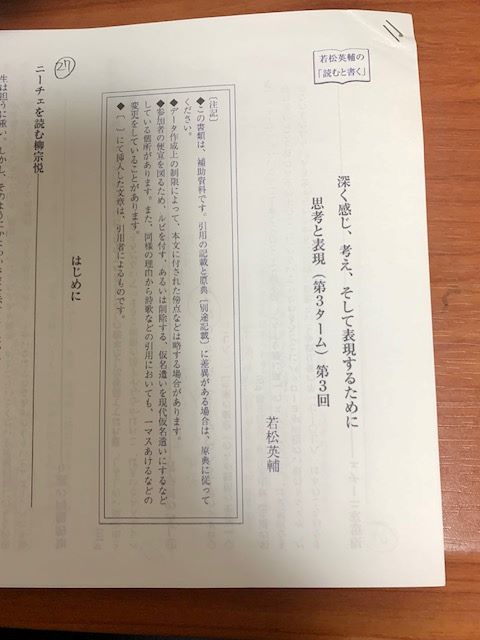 若松英輔の
「読むと書く」
深く感じ、考え、そして表現するために
思考と表現（第３ターム）第３回
若松英輔
［注記］
◆この書類は、補助資料です。引用の記載と原典［別途記載］に差異がある場合は、原典に従って
ください。
◆データ作成上の制限によって、本文に付された傍点などは略する場合があります。
◆参加者の便宜を図るため、ルビを付す、あるいは削除する、仮名遣いを現代仮名遣いにするなど
している個所があります。また、同様の理由から詩歌などの引用においても、一マスあけるなどの
変更をしていることがあります。
◆［　］にて挿入した文章は、引用者によるものです。
はじめに
㉗
ニーチェを読む柳宗悦